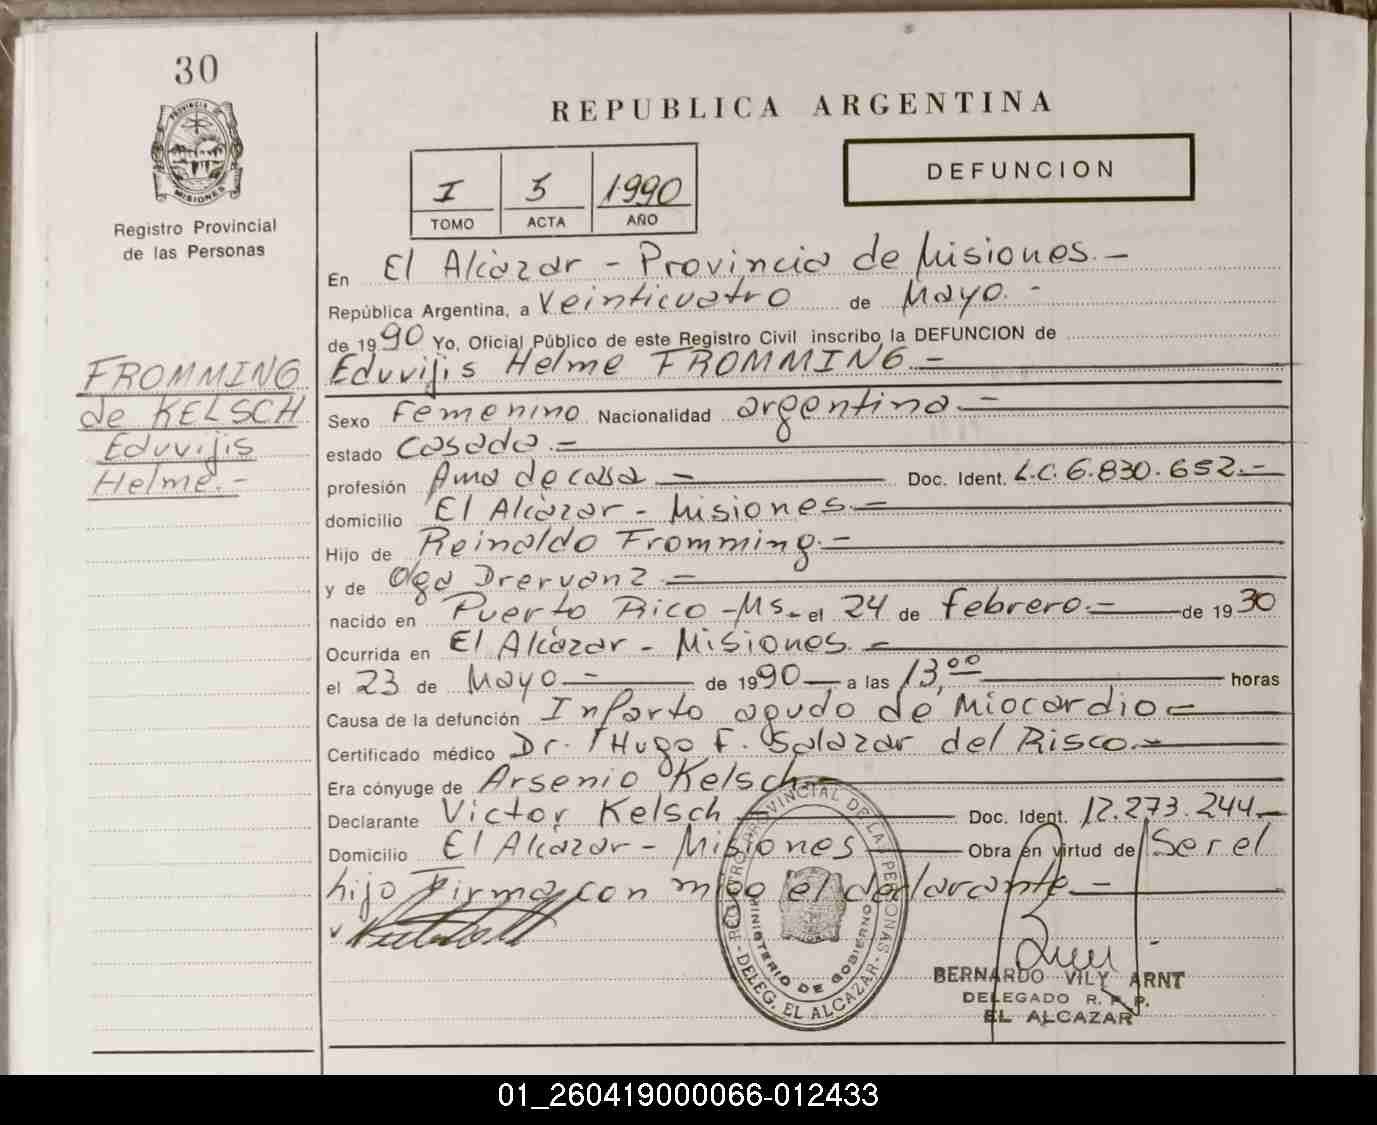 30
PROVINCIA
MISIONES
Registro Provincial
de las Personas
REPUBLICA ARGENTINA
DEFUNCION
I 5 1990
TOMO ACTA AÑO
En El Alcázar - Provincia de Misiones.-
República Argentina, a Veinticuatro de Mayo.-
de 1990 Yo, Oficial Público de este Registro Civil inscribo la DEFUNCION de
Eduvijis Helme FROMMING.-
FROMMING
de KELSCH
Eduvijis
Helme.-
Sexo Femenino Nacionalidad argentina.-
estado Casada.-
profesión Ama de casa.- Doc. Ident. L.C. 6.830.652.-
domicilio El Alcázar - Misiones.-
Hijo de Reinaldo Fromming.-
y de Olga Drervanz.-
nacido en Puerto Rico-Ms.- el 24 de febrero.- de 1930
Ocurrida en El Alcázar - Misiones.-
el 23 de Mayo.- de 1990 a las 13,00 horas
Causa de la defunción Infarto agudo de Miocardio-
Certificado médico Dr. Hugo F. Salazar del Risco.-
Era cónyuge de Arsenio Kelsch.-
Declarante Victor Kelsch Doc. Ident. 12.273.244.-
Domicilio El Alcázar - Misiones Obra en virtud de Ser el
hijo Firma con migo el declarante.-
REGISTRO PROVINCIAL DE LAS PERSONAS
MINISTERIO DE GOBIERNO
- DELEG. EL ALCAZAR -
BERNARDO VILY ARNT
DELEGADO R. P. P.
EL ALCAZAR
01_260419000066-012433